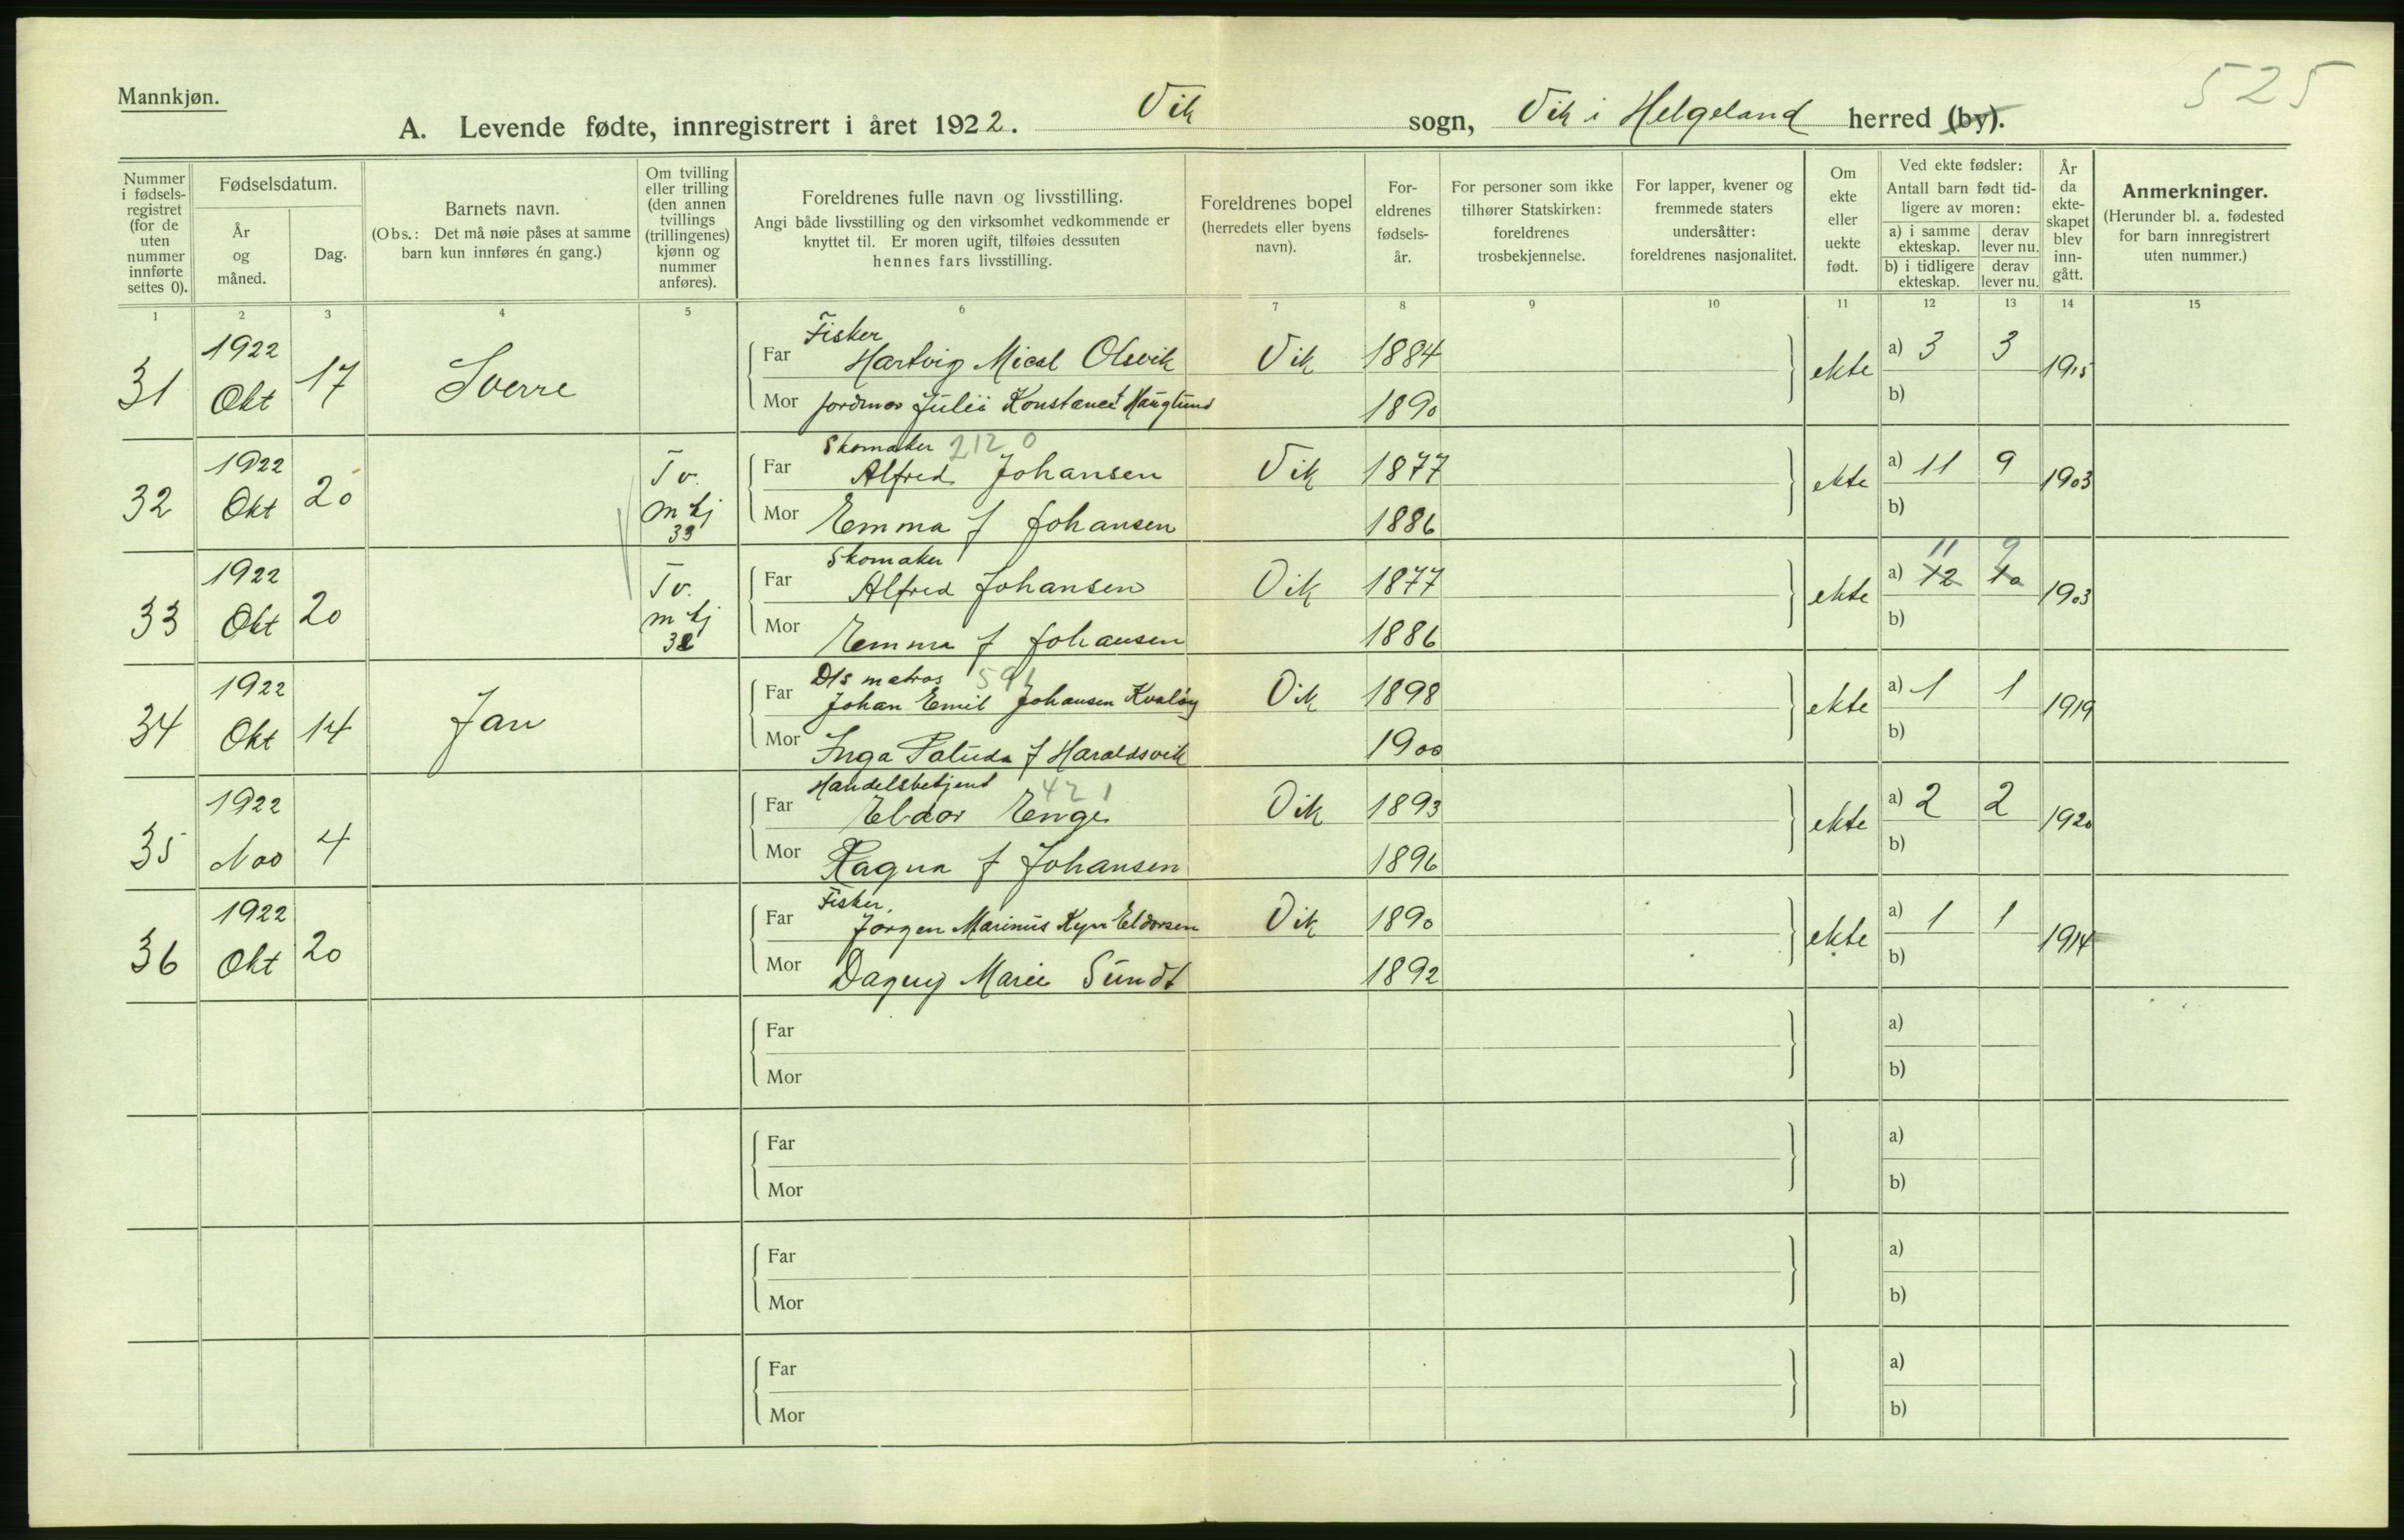 525
Mannkjøn.
A. Levende fødte, innregistrert i året 1922. Vik sogn, Vik i Helgeland herred (by).
Nummer i fødsels-registret (for de uten nummer innførte settes 0).
Fødselsdatum.
År og måned.
Dag.
Barnets navn.
(Obs.: Det må nøie påses at samme barn kun innføres én gang.)
Om tvilling eller trilling (den annen tvillings (trillingenes) kjønn og nummer anføres).
Foreldrenes fulle navn og livsstilling.
Angi både livsstilling og den virksomhet vedkommende er knyttet til. Er moren ugift, tilføies dessuten hennes fars livsstilling.
Foreldrenes bopel (herredets eller byens navn).
For-eldrenes fødsels-år.
For personer som ikke tilhører Statskirken: foreldrenes trosbekjennelse.
For lapper, kvener og fremmede staters undersåtter: foreldrenes nasjonalitet.
Om ekte eller uekte født.
Ved ekte fødsler: Antall barn født tid-ligere av moren:
a) i samme ekteskap. derav lever nu.
b) i tidligere ekteskap. derav lever nu.
År da ekte-skapet blev inn-gått.
Anmerkninger.
(Herunder bl. a. fødested for barn innregistrert uten nummer.)
1 2 3 4 5 6 7 8 9 10 11 12 13 14 15
31 1922 Okt 17 Sverre
Fisker
Far Hartvig Olsvik Vik 1884 ekte a) 3 3 1915
Mor jordmor Julie Hauglund 1890 b)
32 1922 Okt 20 Tv. m kj 33
Skomaker 212 0
Far Alfred Johansen Vik 1877 ekte a) 11 9 1903
Mor Emma f Johansen 1886 b)
33 1922 Okt 20 Tv. m kj 32
Skomaker
11 9
Far Alfred Johansen Vik 1877 ekte a) 12 10 1903
Mor Emma f Johansen 1886 b)
34 1922 Okt 14 Jan
D/s matros 591
Far Johan Emil Johansen Kvaløy Vik 1898 ekte a) 1 1 1919
Mor Inga f Haraldsvik 1900 b)
35 1922 Nov 4
Handelsbetjent 421
Far Eldor Enge Vik 1893 ekte a) 2 2 1920
Mor Ragna f Johansen 1896 b)
36 1922 Okt 20
Fisker.
Far Jørgen Marinus Eldorsen Vik 1890 ekte a) 1 1 1914
Mor Dagny Marie Sundt 1892 b)
Far a)
Mor b)
Far a)
Mor b)
Far a)
Mor b)
Far a)
Mor b)